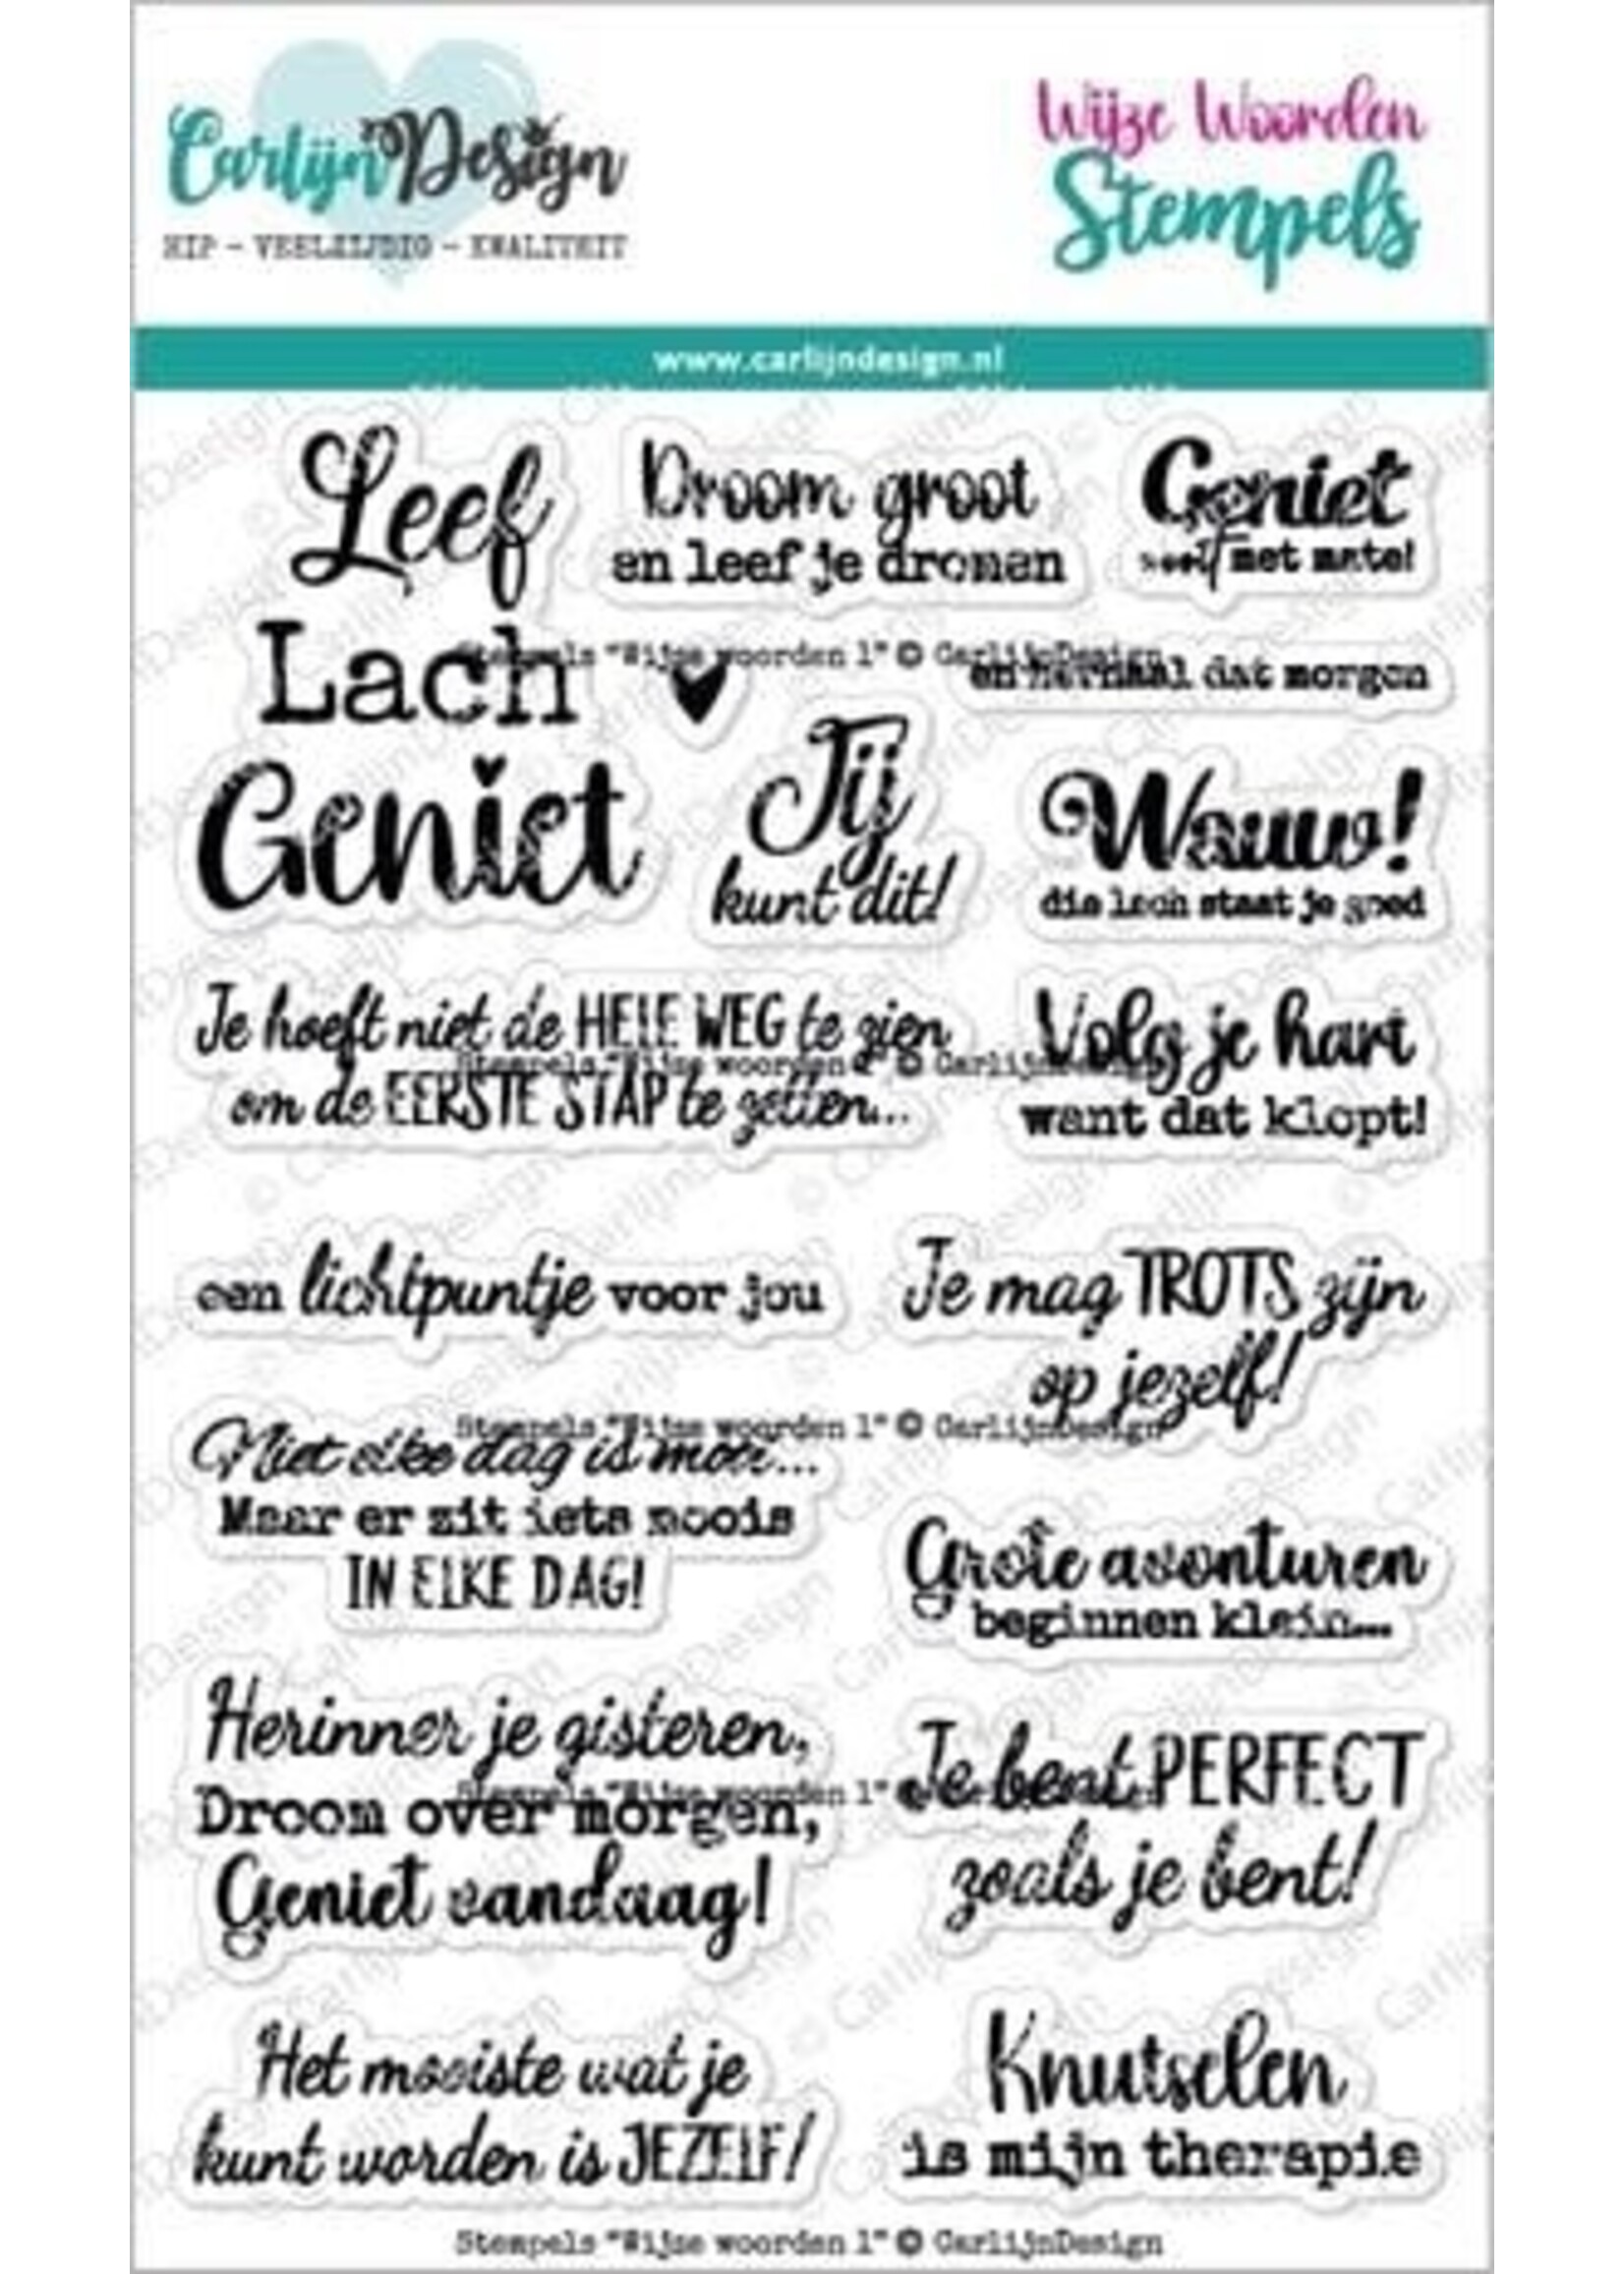 CarlijnDesign
HIP - VEELZIJDIG - KWALITEIT
Wijze Woorden
Stempels
www.carlijndesign.nl
Leef
Lach
Geniet
Droom groot
en leef je dromen
Geniet
nooit met mate!
en herhaal dat morgen
Jij
kunt dit!
Wauw!
die lach staat je goed
Je hoeft niet de HELE WEG te zien
om de EERSTE STAP te zetten...
Volg je hart
want dat klopt!
een lichtpuntje voor jou
Je mag TROTS zijn
op jezelf!
Niet elke dag is mooi...
Maar er zit iets moois
IN ELKE DAG!
Grote avonturen
beginnen klein...
Herinner je gisteren,
Droom over morgen,
Geniet vandaag!
Je bent PERFECT
zoals je bent!
Het mooiste wat je
kunt worden is JEZELF!
Knutselen
is mijn therapie
Stempels "Wijze woorden 1" © CarlijnDesign
Stempels "Wijze woorden 1" © CarlijnDesign
Stempels "Wijze woorden 1" © CarlijnDesign
Stempels "Wijze woorden 1" ©
Stempels "Wijze woorden 1" © CarlijnDesign